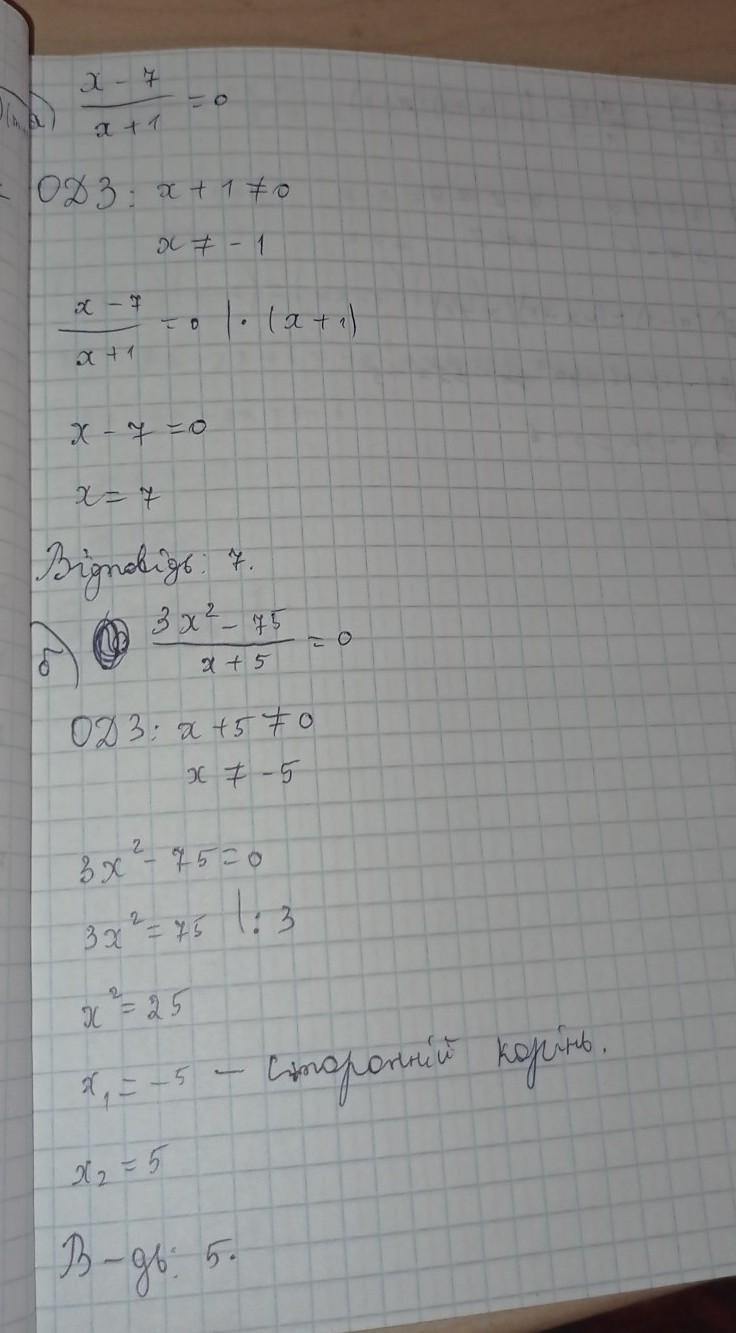 а) (x - 7)/(x + 1) = 0
ОДЗ: x + 1 ≠ 0
x ≠ - 1
(x - 7)/(x + 1) = 0 | · (x + 1)
x - 7 = 0
x = 7
Відповідь: 7.
б) (3x² - 75)/(x + 5) = 0
ОДЗ: x + 5 ≠ 0
x ≠ - 5
3x² - 75 = 0
3x² = 75 | : 3
x² = 25
x₁ = -5 — сторонній корінь.
x₂ = 5
В-дь: 5.